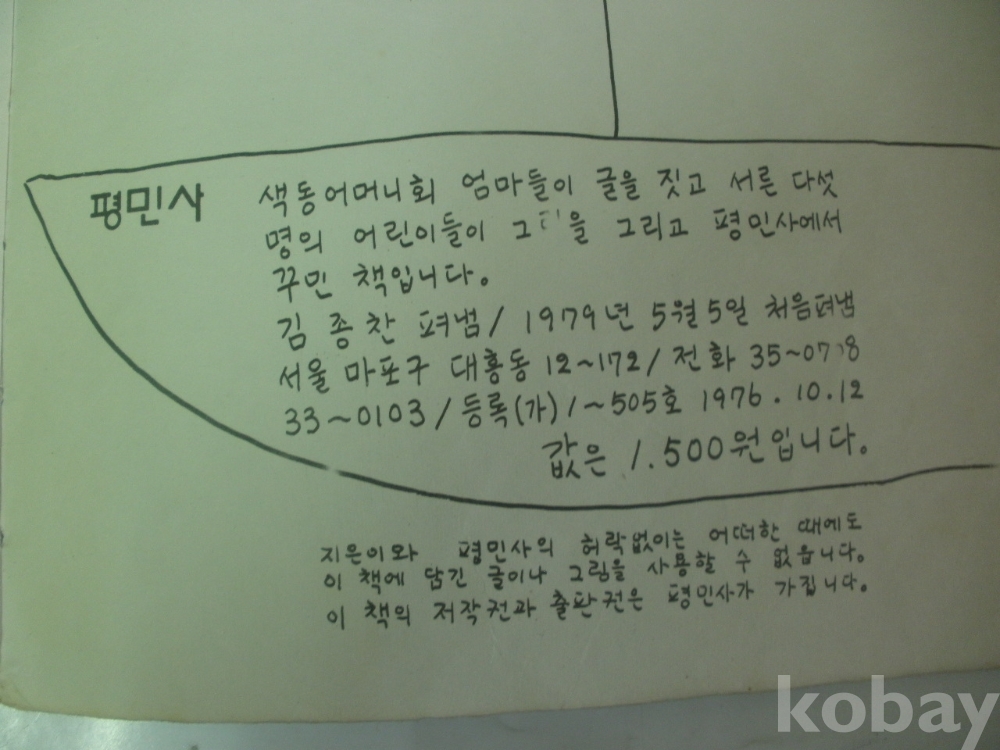 평민사
색동어머니회 엄마들이 글을 짓고 서른 다섯
명의 어린이들이 을 그리고 평민사에서
꾸민 책입니다.
김종찬 펴냄/1979년 5월5일 처음펴냄
서울 마포구 대흥동 12~172/전화
33~0103/등록(가)1~505호 1976.10.12
값은 1.500원입니다.
지은이와 평민사의 허락없이는 어떠한 때에도
이 책에 담긴 글이나 그림을 사용할 수 없읍니다.
이 책의 저작권과 출판권은 평민사가 가집니다.
kobay